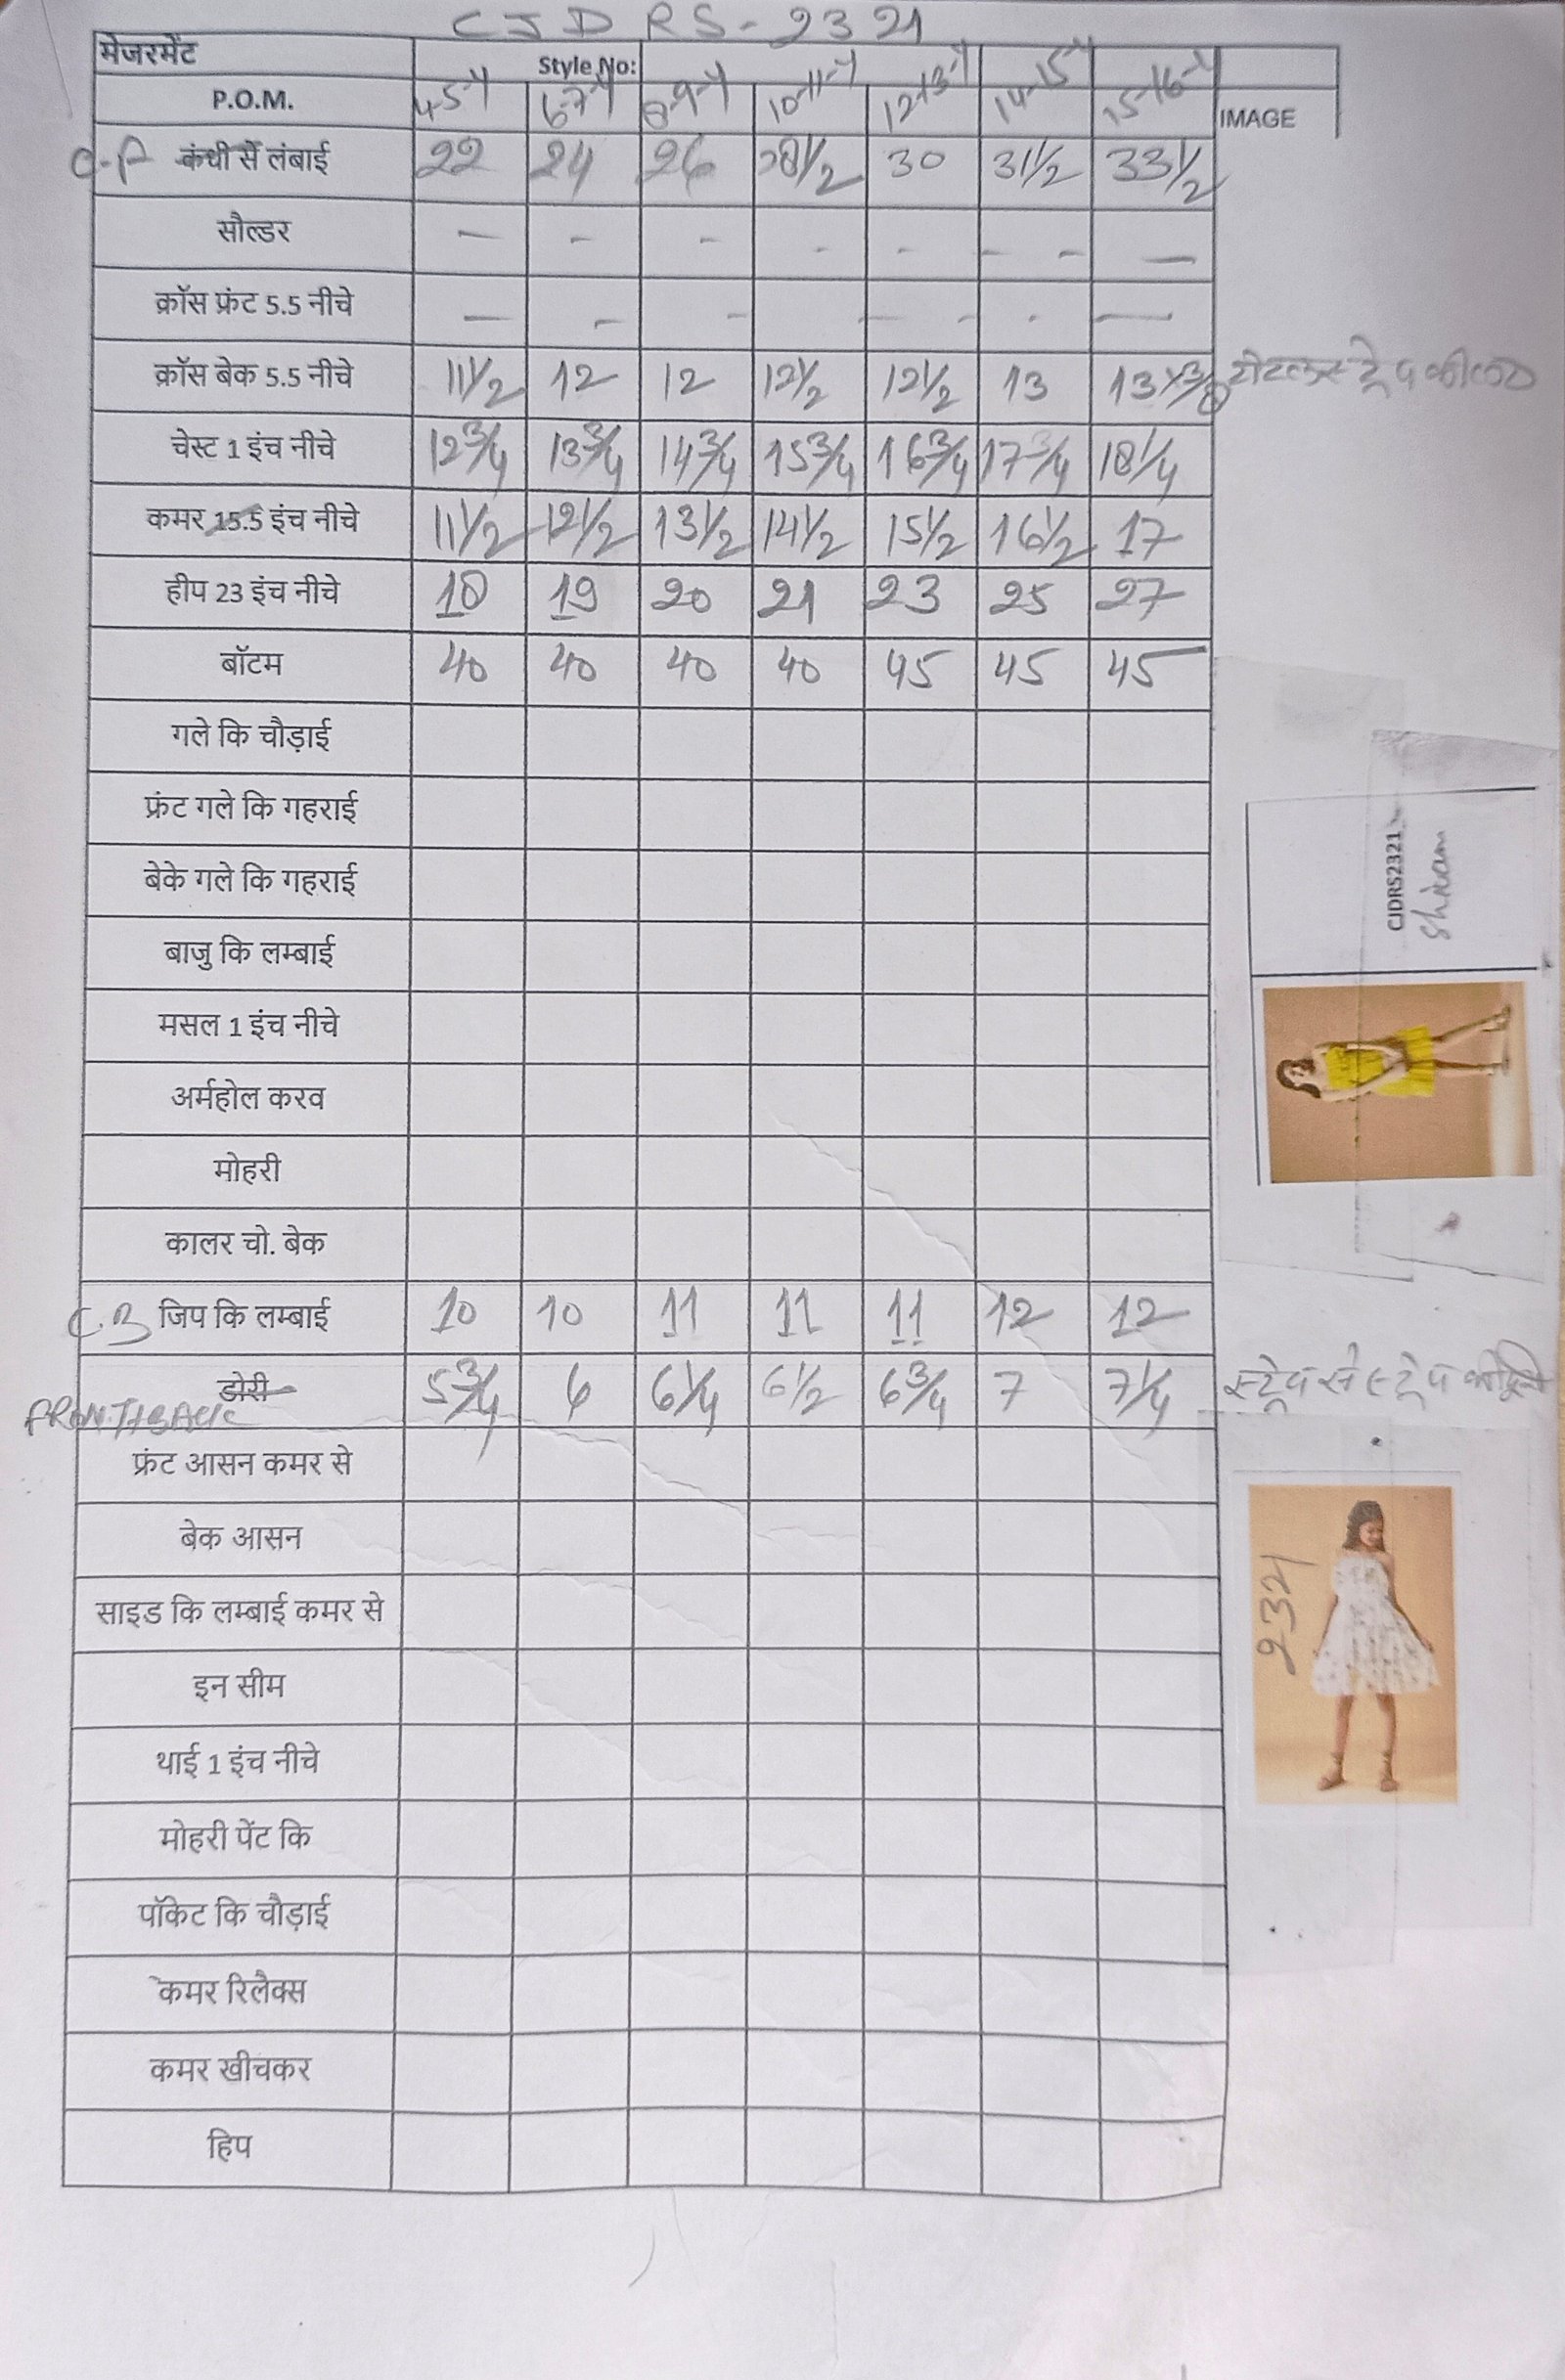 CJDRS-2321
मेजरमेंट Style No:
P.O.M. 4-5-Y 6-7-Y 8-9-Y 10-11-Y 12-13-Y 14-15-Y 15-16-Y IMAGE
C.F कंधी सें लंबाई 22 24 26 28 1/2 30 31 1/2 33 1/2
सौल्डर - - - - - - - -
क्रॉस फ्रंट 5.5 नीचे - - - - - - -
क्रॉस बेक 5.5 नीचे 11 1/2 12 12 12 1/2 12 1/2 13 13
चेस्ट 1 इंच नीचे 12 3/4 13 3/4 14 3/4 15 3/4 16 3/4 17 3/4 18 1/4
कमर 15.5 इंच नीचे 11 1/2 12 1/2 13 1/2 14 1/2 15 1/2 16 1/2 17
हीप 23 इंच नीचे 18 19 20 21 23 25 27
बॉटम 40 40 40 40 45 45 45
गले कि चौड़ाई
फ्रंट गले कि गहराई
बेके गले कि गहराई
बाजु कि लम्बाई
मसल 1 इंच नीचे
अर्महोल करव
मोहरी
कालर चो. बेक
C.B जिप कि लम्बाई 10 10 11 11 11 12 12
डोरी 5 3/4 6 6 1/4 6 1/2 6 3/4 7 7 1/4 स्ट्रेप से स्ट्रेप की
FRONT+BACK
फ्रंट आसन कमर से
बेक आसन
साइड कि लम्बाई कमर से
इन सीम
थाई 1 इंच नीचे
मोहरी पेंट कि
पॉकेट कि चौड़ाई
कमर रिलैक्स
कमर खीचकर
हिप
CJDRS2321
Shivam
2321